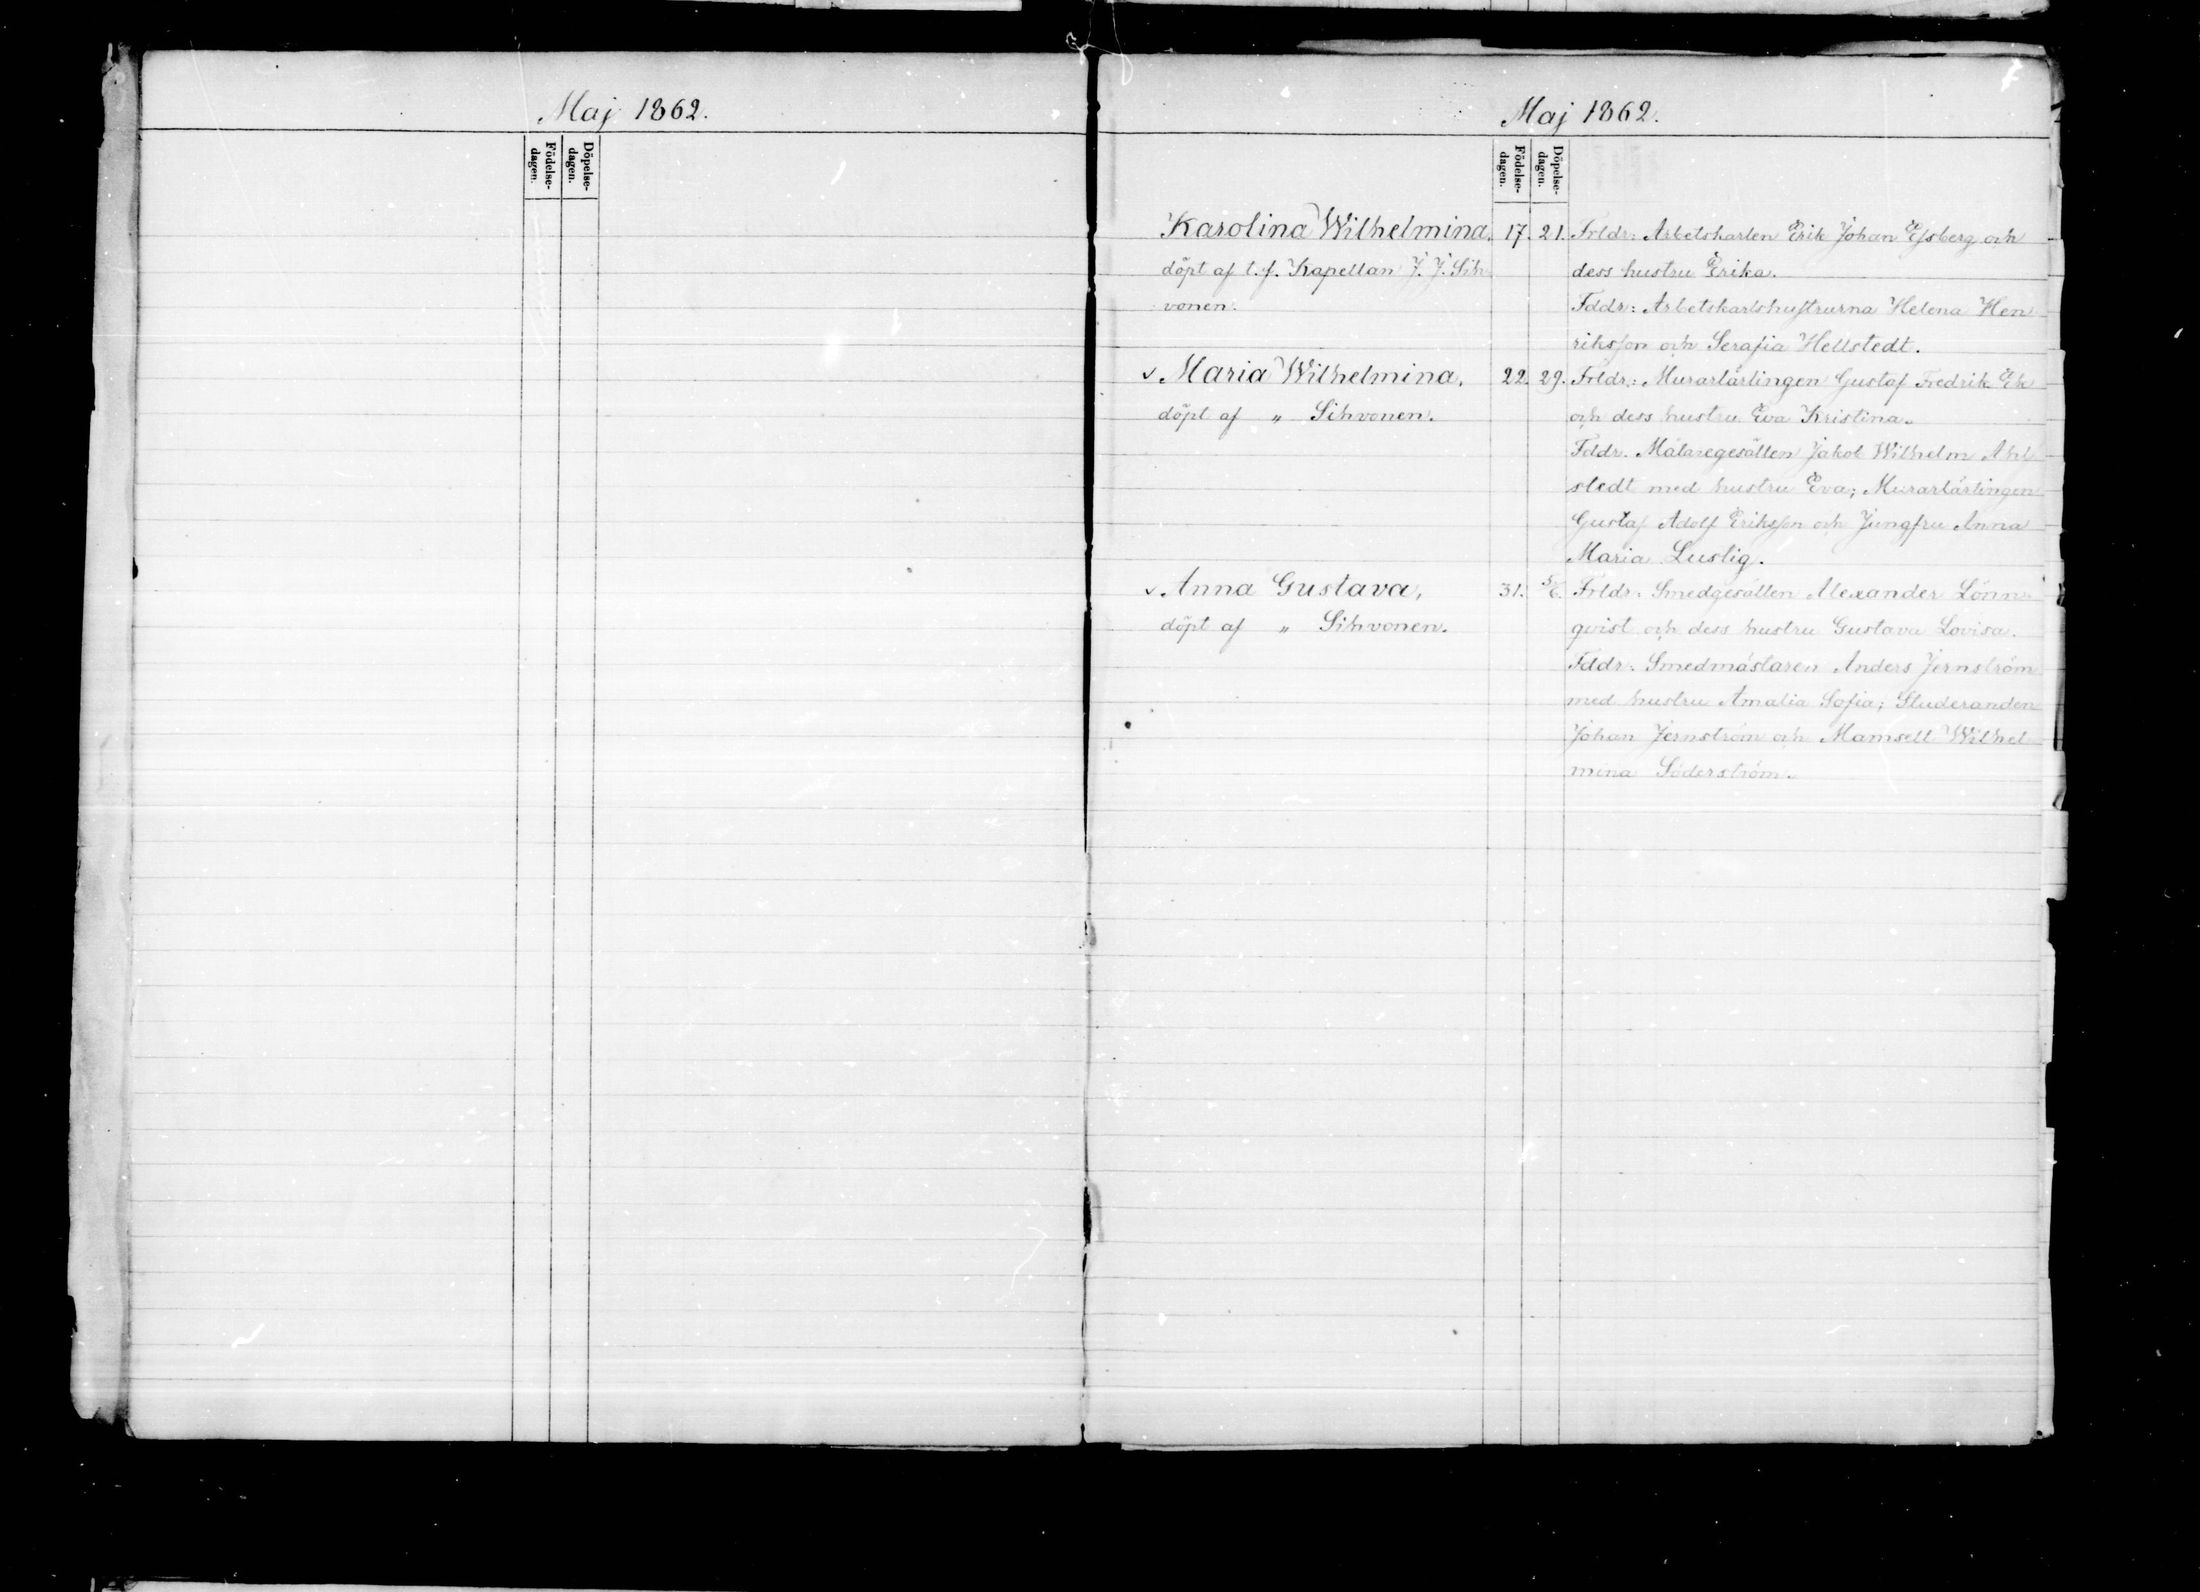 Maj 1862.
Födelse-
dagen.
Döpelse-
dagen.
Maj 1862.
Födelse-
dagen.
Döpelse-
dagen.
Karolina Wilhelmina, 17. 21. Frldr: Arbetskarlen Erik Johan Essberg och
döpt af t.f. Kapellan J. J. Sih dess hustru Erika.
vonen. Fddr: Arbetskarlshustrurna Helena Hen
riksson och Serafia Hellstedt.
v Maria Wilhelmina, 22. 29. Frldr: Murarlärlingen Gustaf Fredrik Ek
döpt af " Sihvonen. och dess hustru Eva Kristina.
Fddr. Målaregesällen Jakob Wilhelm Ahl
stedt med hustru Eva; Murarlärlingen
Gustaf Adolf Eriksson och Jungfru Anna
Maria Lustig.
v Anna Gustava, 31. 5/6. Frldr: Smedgesällen Alexander Lönn
döpt af " Sihvonen. qvist och dess hustru Gustava Lovisa.
Fddr: Smedmästaren Anders Jernström
med hustru Amalia Sofia; Studeranden
Johan Jernström och Mamsell Wilhel
mina Söderström.